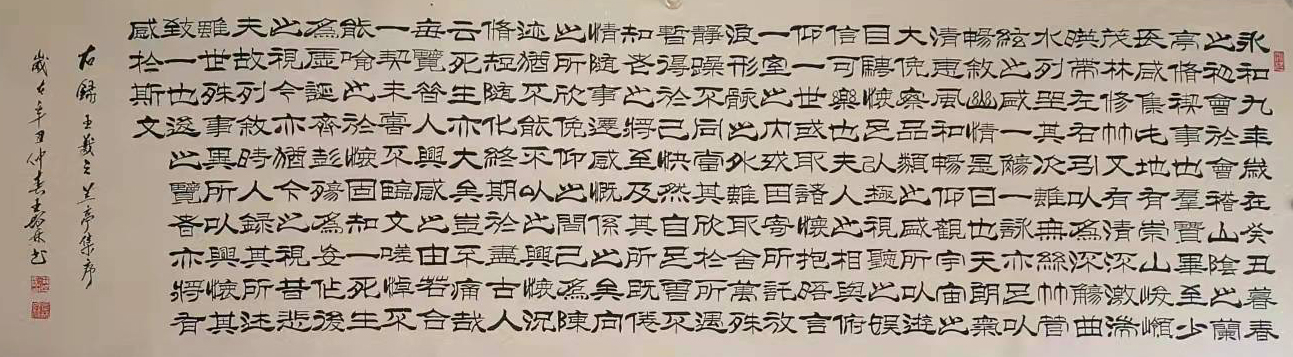 永和九年歲在癸丑暮春
之初會於會稽山陰之蘭
亭脩禊事也羣賢畢至少
長咸集此地有崇山峻嶺
茂林修竹又有清流激湍
暎帶左右引以為流觴曲
水列坐其次雖無絲竹管
絃之盛一觴一詠亦足以
暢敘幽情是日也天朗氣
清惠風和暢仰觀宇宙之
大俛察品類之盛所以遊
目騁懷足以極視聽之娛
信可樂也夫人之相與俯
仰一世或取諸懷抱晤言
一室之內或因寄所託放
浪形骸之外雖取舍萬殊
靜躁不同當其欣於所遇
暫得於己快然自足曾不
知老之將至及其所既倦
情隨事遷感慨係之矣向
之所欣俛仰之閒已為陳
迹猶不能不以之興懷況
脩短隨化終期於盡古人
云死生亦大矣豈不痛哉
每覽昔人興感之由若合
一契未嘗不臨文嗟悼不
能喻之於懷固知一死生
為虛誕齊彭殤為妄作後
之視今亦猶今之視昔悲
夫故列敘時人錄其所述
雖世殊事異所以興懷其
致一也後之覽者亦將有
感於斯文
右錄王羲之蘭亭集序
歲在辛丑仲春王林書